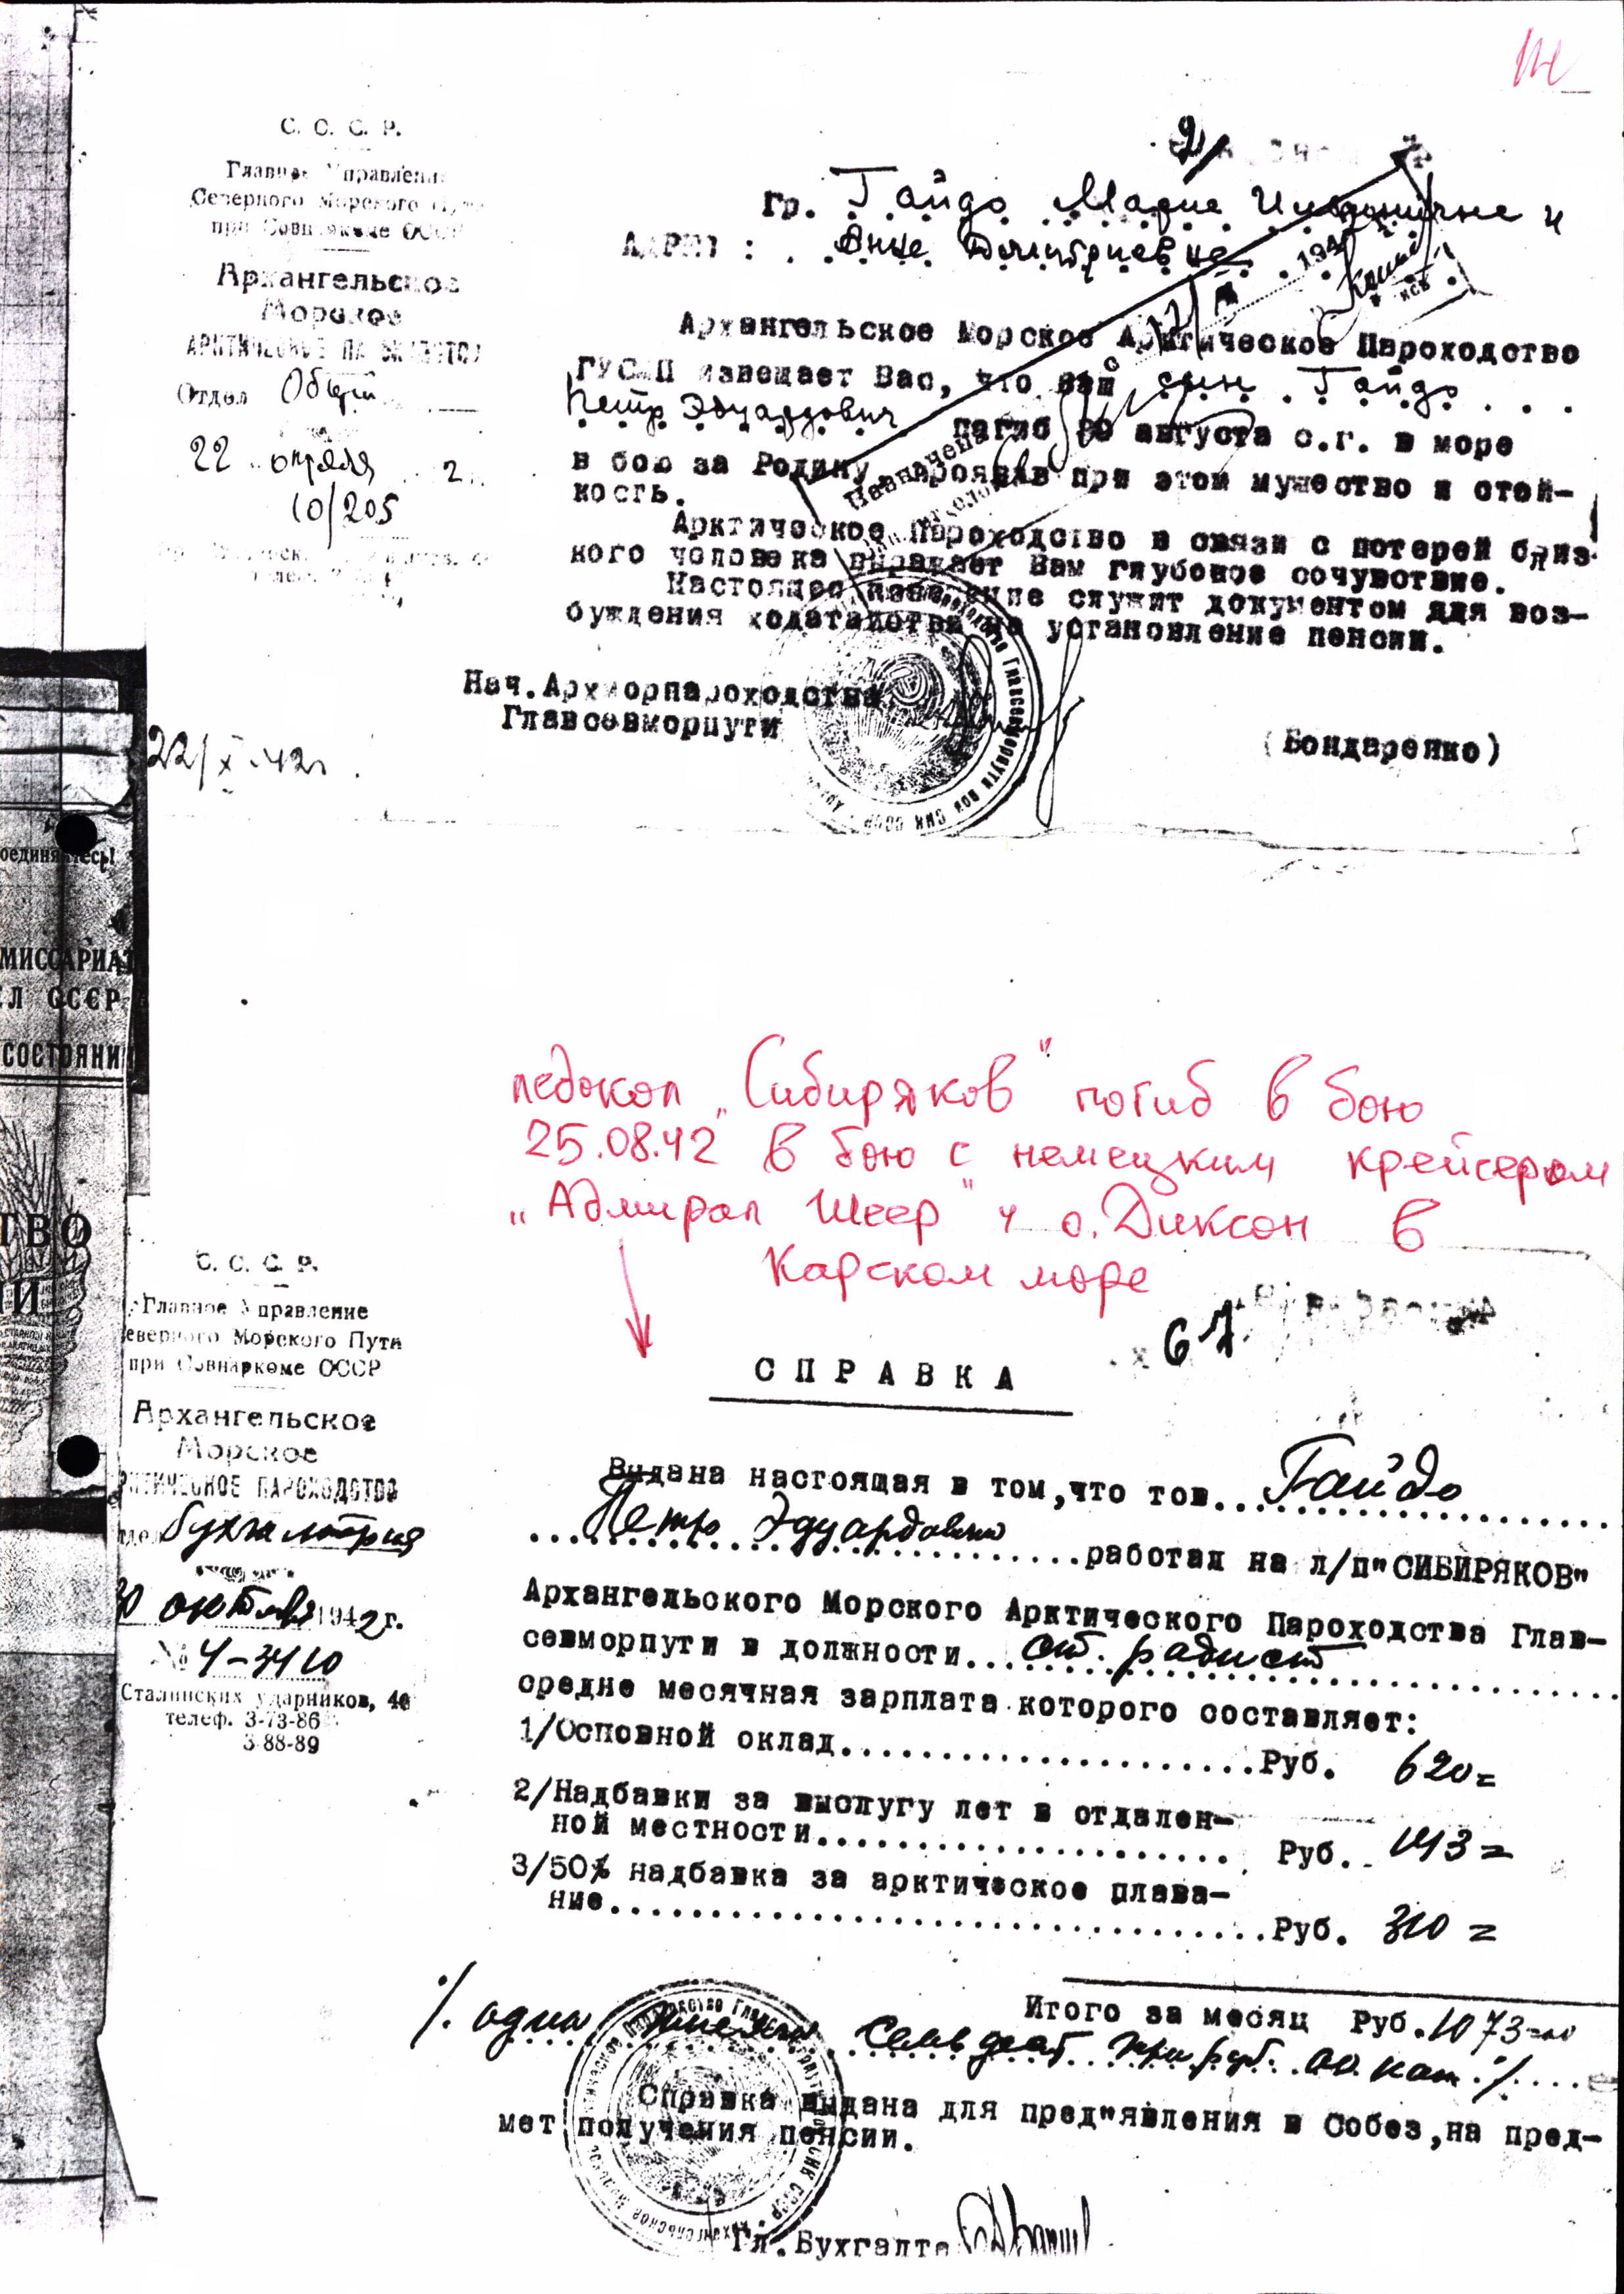 С. С. С. Р.
Главное Управление
Северного Морского Пути
при Совнаркоме СССР
Архангельское
Морское
АРКТИЧЕСКОЕ ПАРОХОДСТВО
Отдел Общий
22
10/205
гр. Гайдо Марие и
АДРЕС : Анне Дмитриевне
194
Архангельское Морское Арктическое Пароходство
ГУСМП извещает Вас, что Ваш сын Гайдо
Петр Эдуардович погиб августа с.г. в море
в бою за Родину, проявив при этом мужество и стой-
кость.
Назначена
Арктическое Пароходство в связи с потерей близ-
кого человека выражает Вам глубокое сочувствие.
Настоящее извещение служит документом для воз-
буждения ходатайства на установление пенсии.
Нач.Архморпароходства
Главсевморпути
(Бондаренко)
22/X-42г.
оединяйтесь!
МИССАРИАТ
ЕЛ СССР
СОСТОЯНИ
ТВО
И
ледокол „Сибиряков" погиб в бою
25.08.42 в бою с немецким крейсером
„Адмирал Шеер" у о. Диксон в
Карском море
С. С. С. Р.
Главное Управление
Северного Морского Пути
при Совнаркоме СССР
Архангельское
Морское
АРКТИЧЕСКОЕ ПАРОХОДСТВО
Отдел Бухгалтерия
30 октября 1942 г.
№ 4-3410
Сталинских ударников,
телеф. 3-73-86
3-88-89
67
СПРАВКА
Выдана настоящая в том,что тов. Гайдо
Петр Эдуардович работал на л/п"СИБИРЯКОВ"
Архангельского Морского Арктического Пароходства Глав-
севморпути в должности ст. радист
средне месячная зарплата которого составляет:
1/Основной оклад Руб. 620=
2/Надбавки за выслугу лет в отдален-
ной местности Руб. 143=
3/50% надбавка за арктическое плава-
ние Руб. 310=
Итого за месяц Руб. 1073=00
/. одна тысяча семьдесят три руб. 00 коп ./
Справка выдана для пред"явления в Собез,на пред-
мет получения пенсии.
Гл.Бухгалте